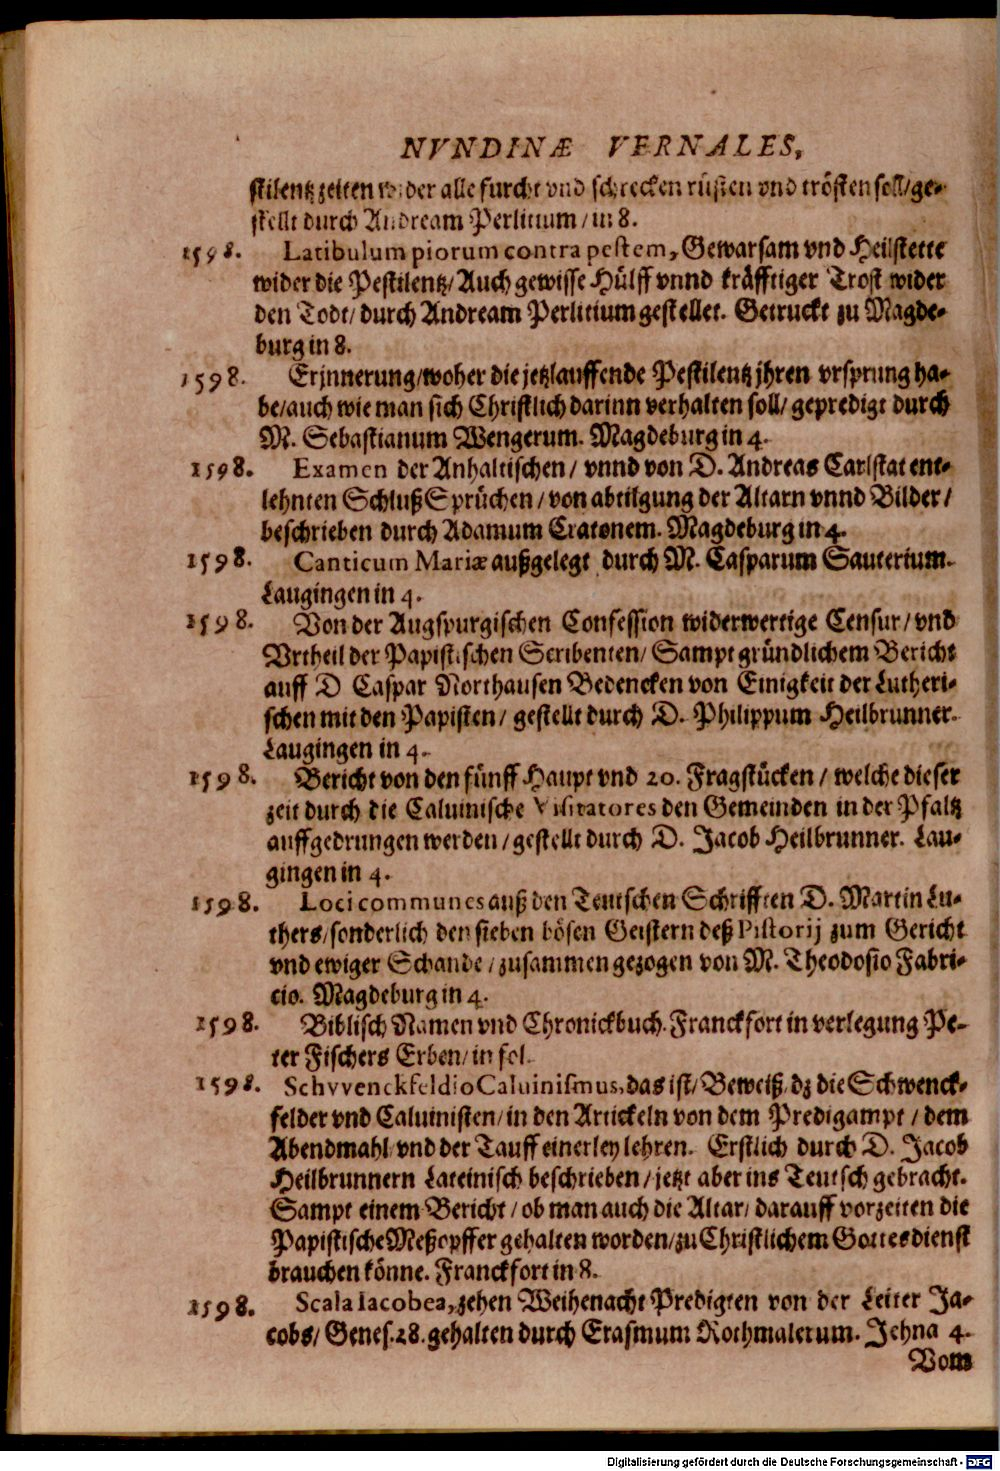 NVNDINÆ VERNALES,
stilentz zeiten wider alle furcht vnd schrecken rüsten vnd trösten soll/ge-
stellt durch Andream Perlitium/in 8.
1598. Latibulum piorum contra pestem, Gewarsam vnd Heilstette
wider die Pestilentz/Auch gewisse Hülff vnnd kräfftiger Trost wider
den Todt/durch Andream Perlitium gestellet. Getruckt zu Magde-
burg in 8.
1598. Erjnnerung/woher die jetzlauffende Pestilentz jhren vrsprung ha-
be/auch wie man sich Christlich darinn verhalten soll/gepredigt durch
M. Sebastianum Wengerum. Magdeburg in 4.
1598. Examen der Anhaltischen/vnnd von D. Andreas Carlstat ent-
lehnten SchlußSprüchen/von abtilgung der Altarn vnnd Bilder/
beschrieben durch Adamum Cratonem. Magdeburg in 4.
1598. Canticum Mariæ außgelegt durch M. Casparum Sauterium.
Laugingen in 4.
1598. Von der Augspurgischen Confession widerwertige Censur/vnd
Vrtheil der Papistischen Scribenten/Sampt gründlichem Bericht
auff D Caspar Northausen Bedencken von Einigkeit der Lutheri-
schen mit den Papisten/gestellt durch D. Philippum Heilbrunner.
Laugingen in 4.
1598. Bericht von den fünff Haupt vnd 20. Fragstücken/welche dieser
zeit durch die Caluinische Visitatores den Gemeinden in der Pfaltz
auffgedrungen werden/gestellt durch D. Jacob Heilbrunner. Lau-
gingen in 4.
1598. Loci communes auß den Teutschen Schrifften D. Martin Lu-
thers/sonderlich den sieben bösen Geistern deß Pistorij zum Gericht
vnd ewiger Schande/zusammen gezogen von M. Theodosio Fabri-
cio. Magdeburg in 4.
1598. Biblisch Namen vnd Chronickbuch. Franckfort in verlegung Pe-
ter Fischers Erben/in fol.
1598. SchvvenckfeldioCaluinismus, das ist/Beweiß/dz die Schwenck-
felder vnd Caluinisten/in den Artickeln von dem Predigampt/dem
Abendmahl/vnd der Tauff einerley lehren. Erstlich durch D. Jacob
Heilbrunnern Lateinisch beschrieben/jetzt aber ins Teutsch gebracht.
Sampt einem Bericht/ob man auch die Altar/darauff vorzeiten die
Papistische Meßopffer gehalten worden/zu Christlichem Gottesdienst
brauchen könne. Franckfort in 8.
1598. Scala Iacobea, zehen Weihenacht Predigten von der Leiter Ja-
cobs/Genes. 28. gehalten durch Erasmum Rothmalerum. Jehna 4.
Vom
Digitalisierung gefördert durch die Deutsche Forschungsgemeinschaft - DFG